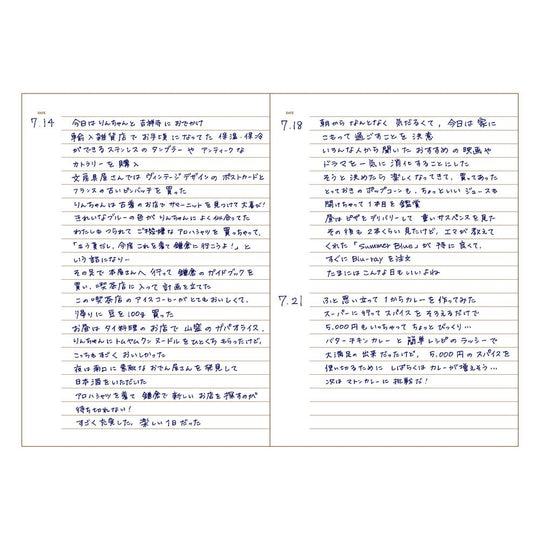 DATE
7.14
今日はりんちゃんと吉祥寺におでかけ
輸入雑貨店でお手頃になってた保温・保冷
ができるステンレスのタンブラーやアンティークな
カトラリーを購入
文房具屋さんではヴィンテージデザインのポストカードと
フランスの古いピンバッヂを買った
りんちゃんは古着のお店でサマーニットを見つけて大喜び!
きれいなブルーの色がりんちゃんによく似合ってた
わたしもつられてご機嫌なアロハシャツを買っちゃって、
「こう見だし、今度これを着て鎌倉に行こうよ!」と
いう話になり…
その足で本屋さんへ行って鎌倉のガイドブックを
買い、喫茶店に入って計画を立てた
この喫茶店のアイスコーヒーがとてもおいしくて、
帰りに豆を100g買った
お昼はタイ料理のお店で山盛のガパオライス、
りんちゃんにトムヤムクンヌードルをひとくちもらったけど、
こっちもすごくおいしかった
夜は南口に素敵なおでん屋さんを発見して
日本酒をいただいた
アロハシャツを着て鎌倉で新しいお店を探すのが
待ち切れない!
すごく充実した、楽しい1日だった
DATE
7.18
朝からなんとなく気だるくて、今日は家に
こもって過ごすことを決意
いろんな人から聞いたおすすめの映画や
ドラマを一気に消化することにした
そうと決めたら楽しくなってきて、買ってあった
とっておきのポップコーンも、ちょっといいジュースも
開けちゃって1本目を鑑賞
昼はピザをデリバリーして重いサスペンスを見た
その後も2本くらい見たけど、エマが教えて
くれた「Summer Blue」が特に良くて、
すぐにBlu-rayを注文
たまにはこんな日もいいよね
7.21
ふと思い立って1からカレーを作ってみた
スーパーに行ってスパイスをそろえるだけで
5,000円もいっちゃってちょっとびっくり…
バターチキンカレーと簡単レシピのラッシーで
大満足の出来だったけど、5,000円のスパイスを
使い切るためにしばらくはカレーが増えそう…
次はマトンカレーに挑戦だ!